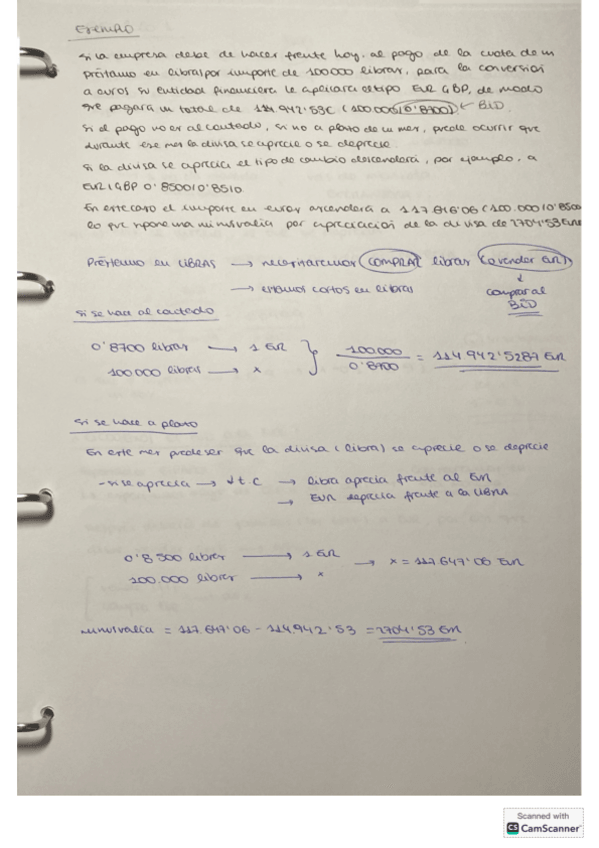 Ejemplo
Si la empresa debe de hacer frente hoy, al pago de la cuota de un
préstamo en libras por importe de 100000 libras, para la conversión
a euros su entidad financiera le aplicará el tipo EUR GBP, de modo
que pagará un total de 114.942'53€ (100.000/0'8700) ← BID
Si el pago no es al contado, si no a plazo de un mes, puede ocurrir que
durante ese mes la divisa se aprecie o se deprecie.
Si la divisa se aprecia el tipo de cambio descenderá, por ejemplo, a
EUR/GBP 0'8500/0'8510
En este caso el importe en euros ascenderá a 117.646'06 (100.000/0'8500
lo que supone una minusvalía por apreciación de la divisa de 2704'53 EUR
Préstamo en LIBRAS → necesitaremos COMPRAR libras (o vender EUR)
→ estamos cortos en libras
↓
comprar al
BID
Si se hace al contado
0'8700 libras → 1 EUR
100000 libras → x
} 100.000 / 0'8700 = 114.942'5287 EUR
Si se hace a plazo
En este mes puede ser que la divisa (libra) se aprecie o se deprecie
- si se aprecia → ↓ t.c → libra aprecia frente al EUR
→ EUR deprecia frente a la LIBRA
0'8500 libras → 1 EUR
100.000 libras → x
→ x = 117.647'06 EUR
minusvalía = 117.647'06 - 114.942'53 = 2704'53 EUR
Scanned with
CS CamScanner